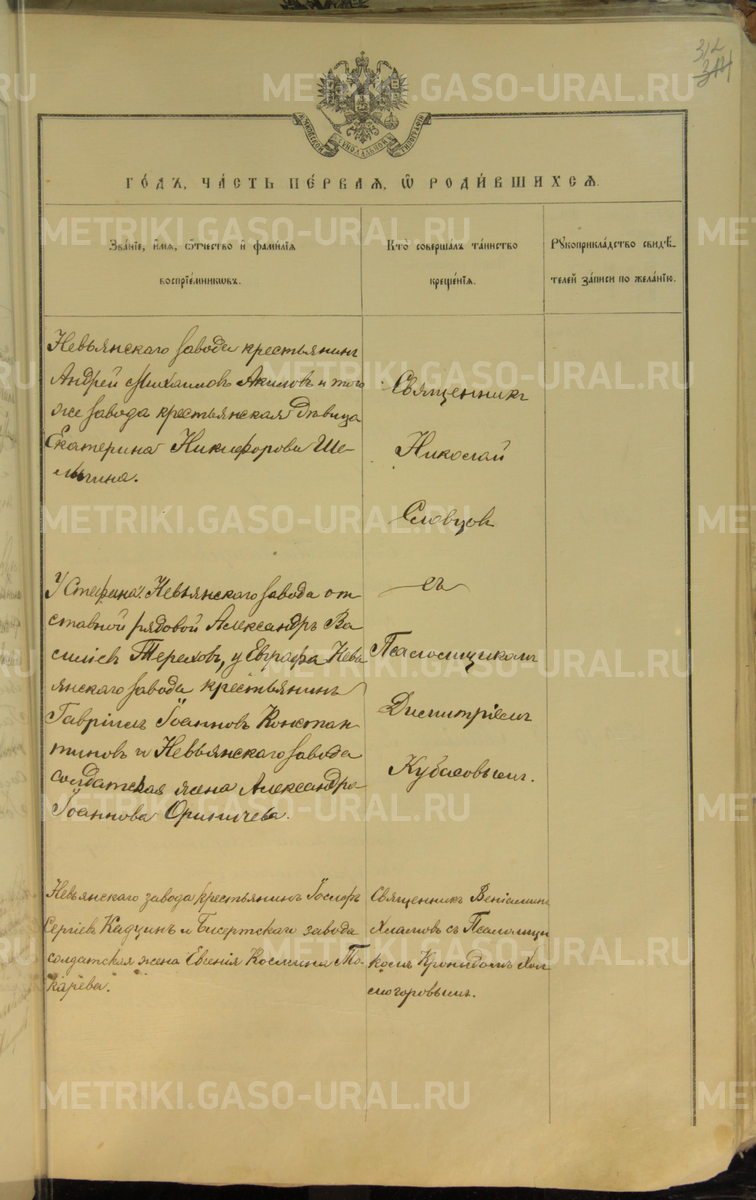 312
314
МОСКОВСКОЙ СѴНОДАЛЬНОЙ ТИПОГРАФІИ
ГО́ДЪ, ЧА́СТЬ ПЕ́РВАЯ, Ѽ РОДИ́ВШИХСЯ.
Зва́нїе, и҆́мя, ѻ҆́тчество и҆ фами́лїя
воспрїе́мниковъ.
Кто̀ соверша́лъ та́инство
креще́нїя.
Рꙋкоприкла́дство свидѣ́-
телей за́писи по жела́нїю.
Невьянскаго завода крестьянинъ
Андрей Михаиловъ Акиловъ и того
же завода крестьянская дѣвица
Екатерина Никифорова Ше-
лыгина.
Священникъ
Николай
Словцовъ
съ
Псаломщикомъ
Димитріемъ
Кубасовымъ.
У Стефана: Невьянскаго завода от-
ставной рядовой Александръ Ва
силіевъ Тереховъ, у Евграфа Невь
янскаго завода крестьянинъ
Гавріилъ Іоанновъ Констан
тиновъ и Невьянскаго завода
солдатская жена Александра
Іоаннова Ориничева.
Невьянскаго завода крестьянинъ Іосифъ
Сергіевъ Кадцинъ и Бисертскаго завода
солдатская жена Евгенія Космина То-
карева.
Священникъ Веніаминъ
съ Псаломщи
комъ Кронидомъ Хол
могоровымъ.
METRIKI.GASO-URAL.RU